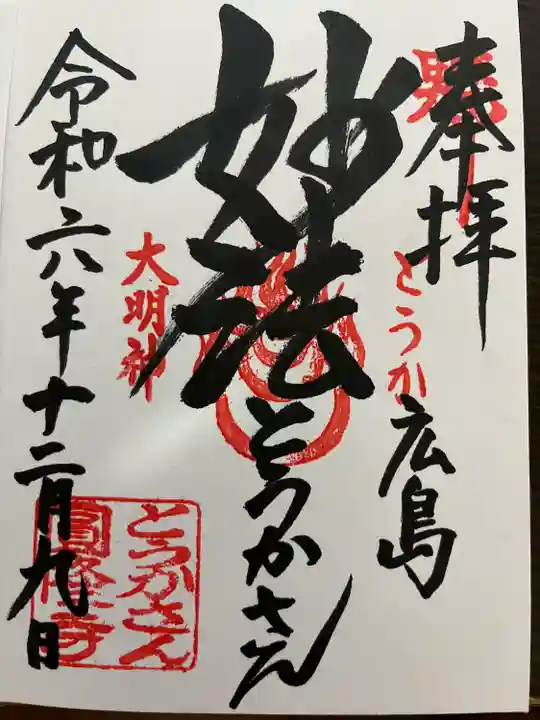 奉拝
とうか
広島
妙法
とうかさん
大明神
令和六年十二月九日
とうかさん
圓隆寺